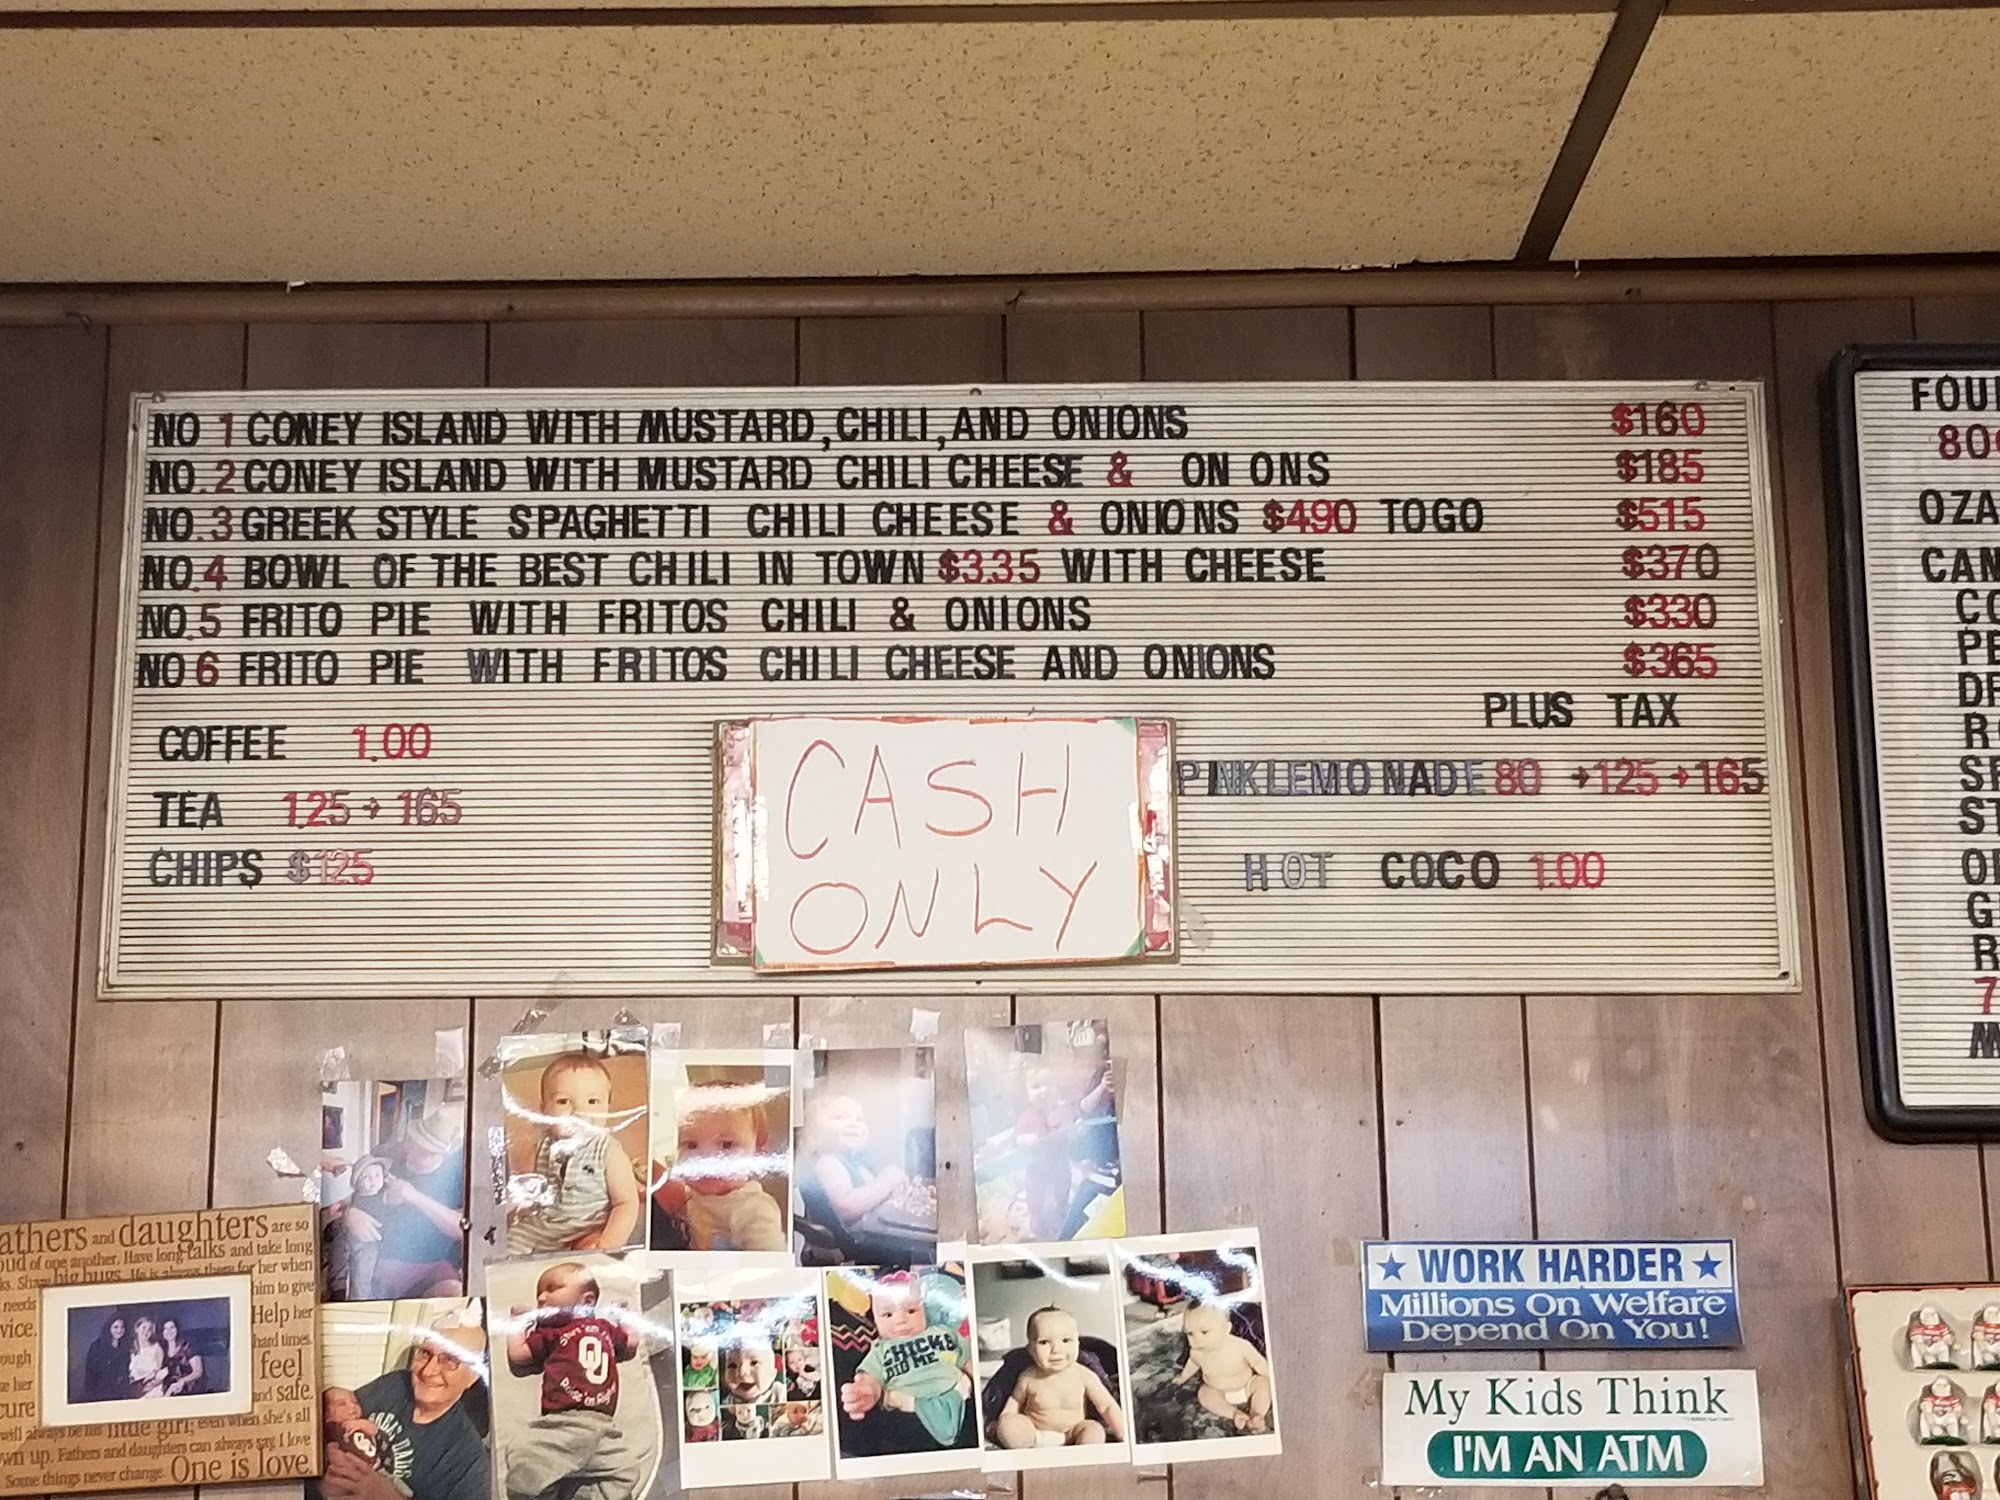 NO 1 CONEY ISLAND WITH MUSTARD, CHILI, AND ONIONS $160
NO.2 CONEY ISLAND WITH MUSTARD CHILI CHEESE & ON ONS $185
NO.3 GREEK STYLE SPAGHETTI CHILI CHEESE & ONIONS $490 TOGO $515
NO.4 BOWL OF THE BEST CHILI IN TOWN $3.35 WITH CHEESE $370
NO.5 FRITO PIE WITH FRITOS CHILI & ONIONS $330
NO 6 FRITO PIE WITH FRITOS CHILI CHEESE AND ONIONS $365
PLUS TAX
COFFEE 1.00
TEA 125→165
CHIPS $125
CASH
ONLY
PINK LEMONADE 80 →125→165
HOT COCO 1.00
FOU
80
OZA
CAN
CO
PE
DR
R
SP
ST
G
R
7
athers and daughters are so
oud of one another. Have long talks and take long
ks. Share big hugs. He is always there for her when
needs him to give
vice. Help her
ough hard times.
e her feel
cure and safe.
will always be his little girl; even when she's all
wn up. Fathers and daughters can always say I love
Some things never change. One is love.
OU
CHICKS
DIG ME
WORK HARDER
Millions On Welfare
Depend On You!
My Kids Think
I'M AN ATM